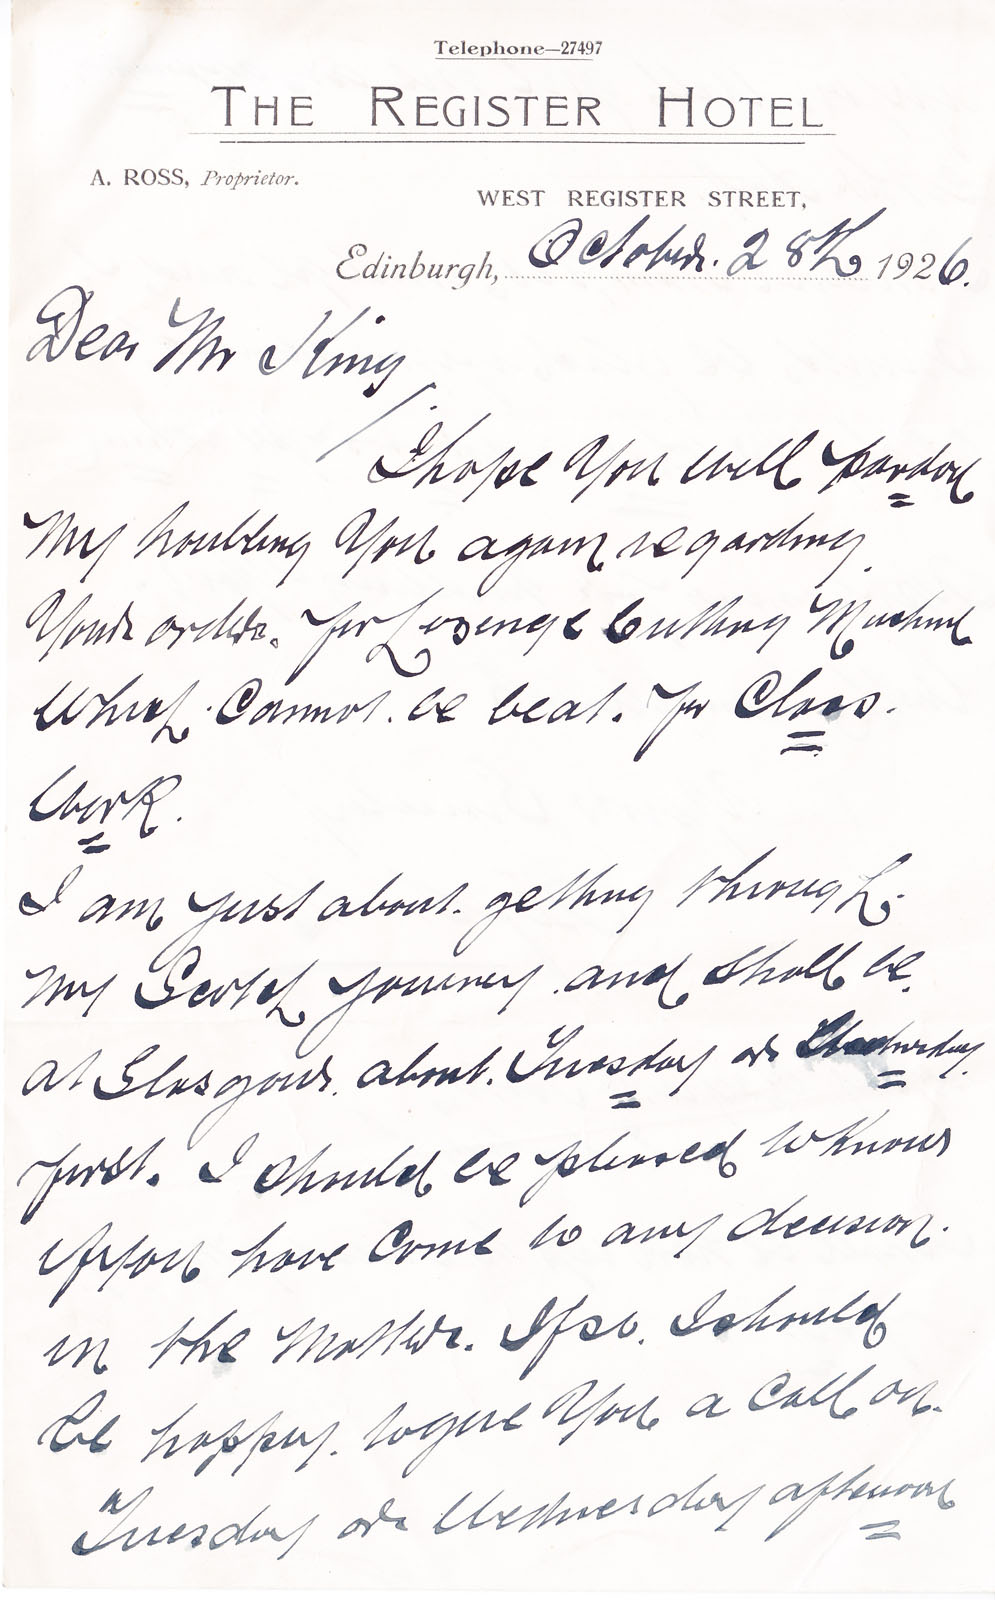 Telephone—27497
THE REGISTER HOTEL
A. ROSS, Proprietor.
WEST REGISTER STREET,
Edinburgh, October. 28th 1926.
Dear Mr King
I hope you will pardon
my troubling you again regarding
your order. for Lozenge Cutting Machine
which cannot be beat. for Class.
Work.
I am just about getting through.
my Scotch journey and shall be
at Glasgow about Tuesday or Wednesday
first. I should be pleased to know
if you have come to any decision.
in the matter. If so. I should
be happy to give you a call on.
Tuesday or Wednesday afternoon